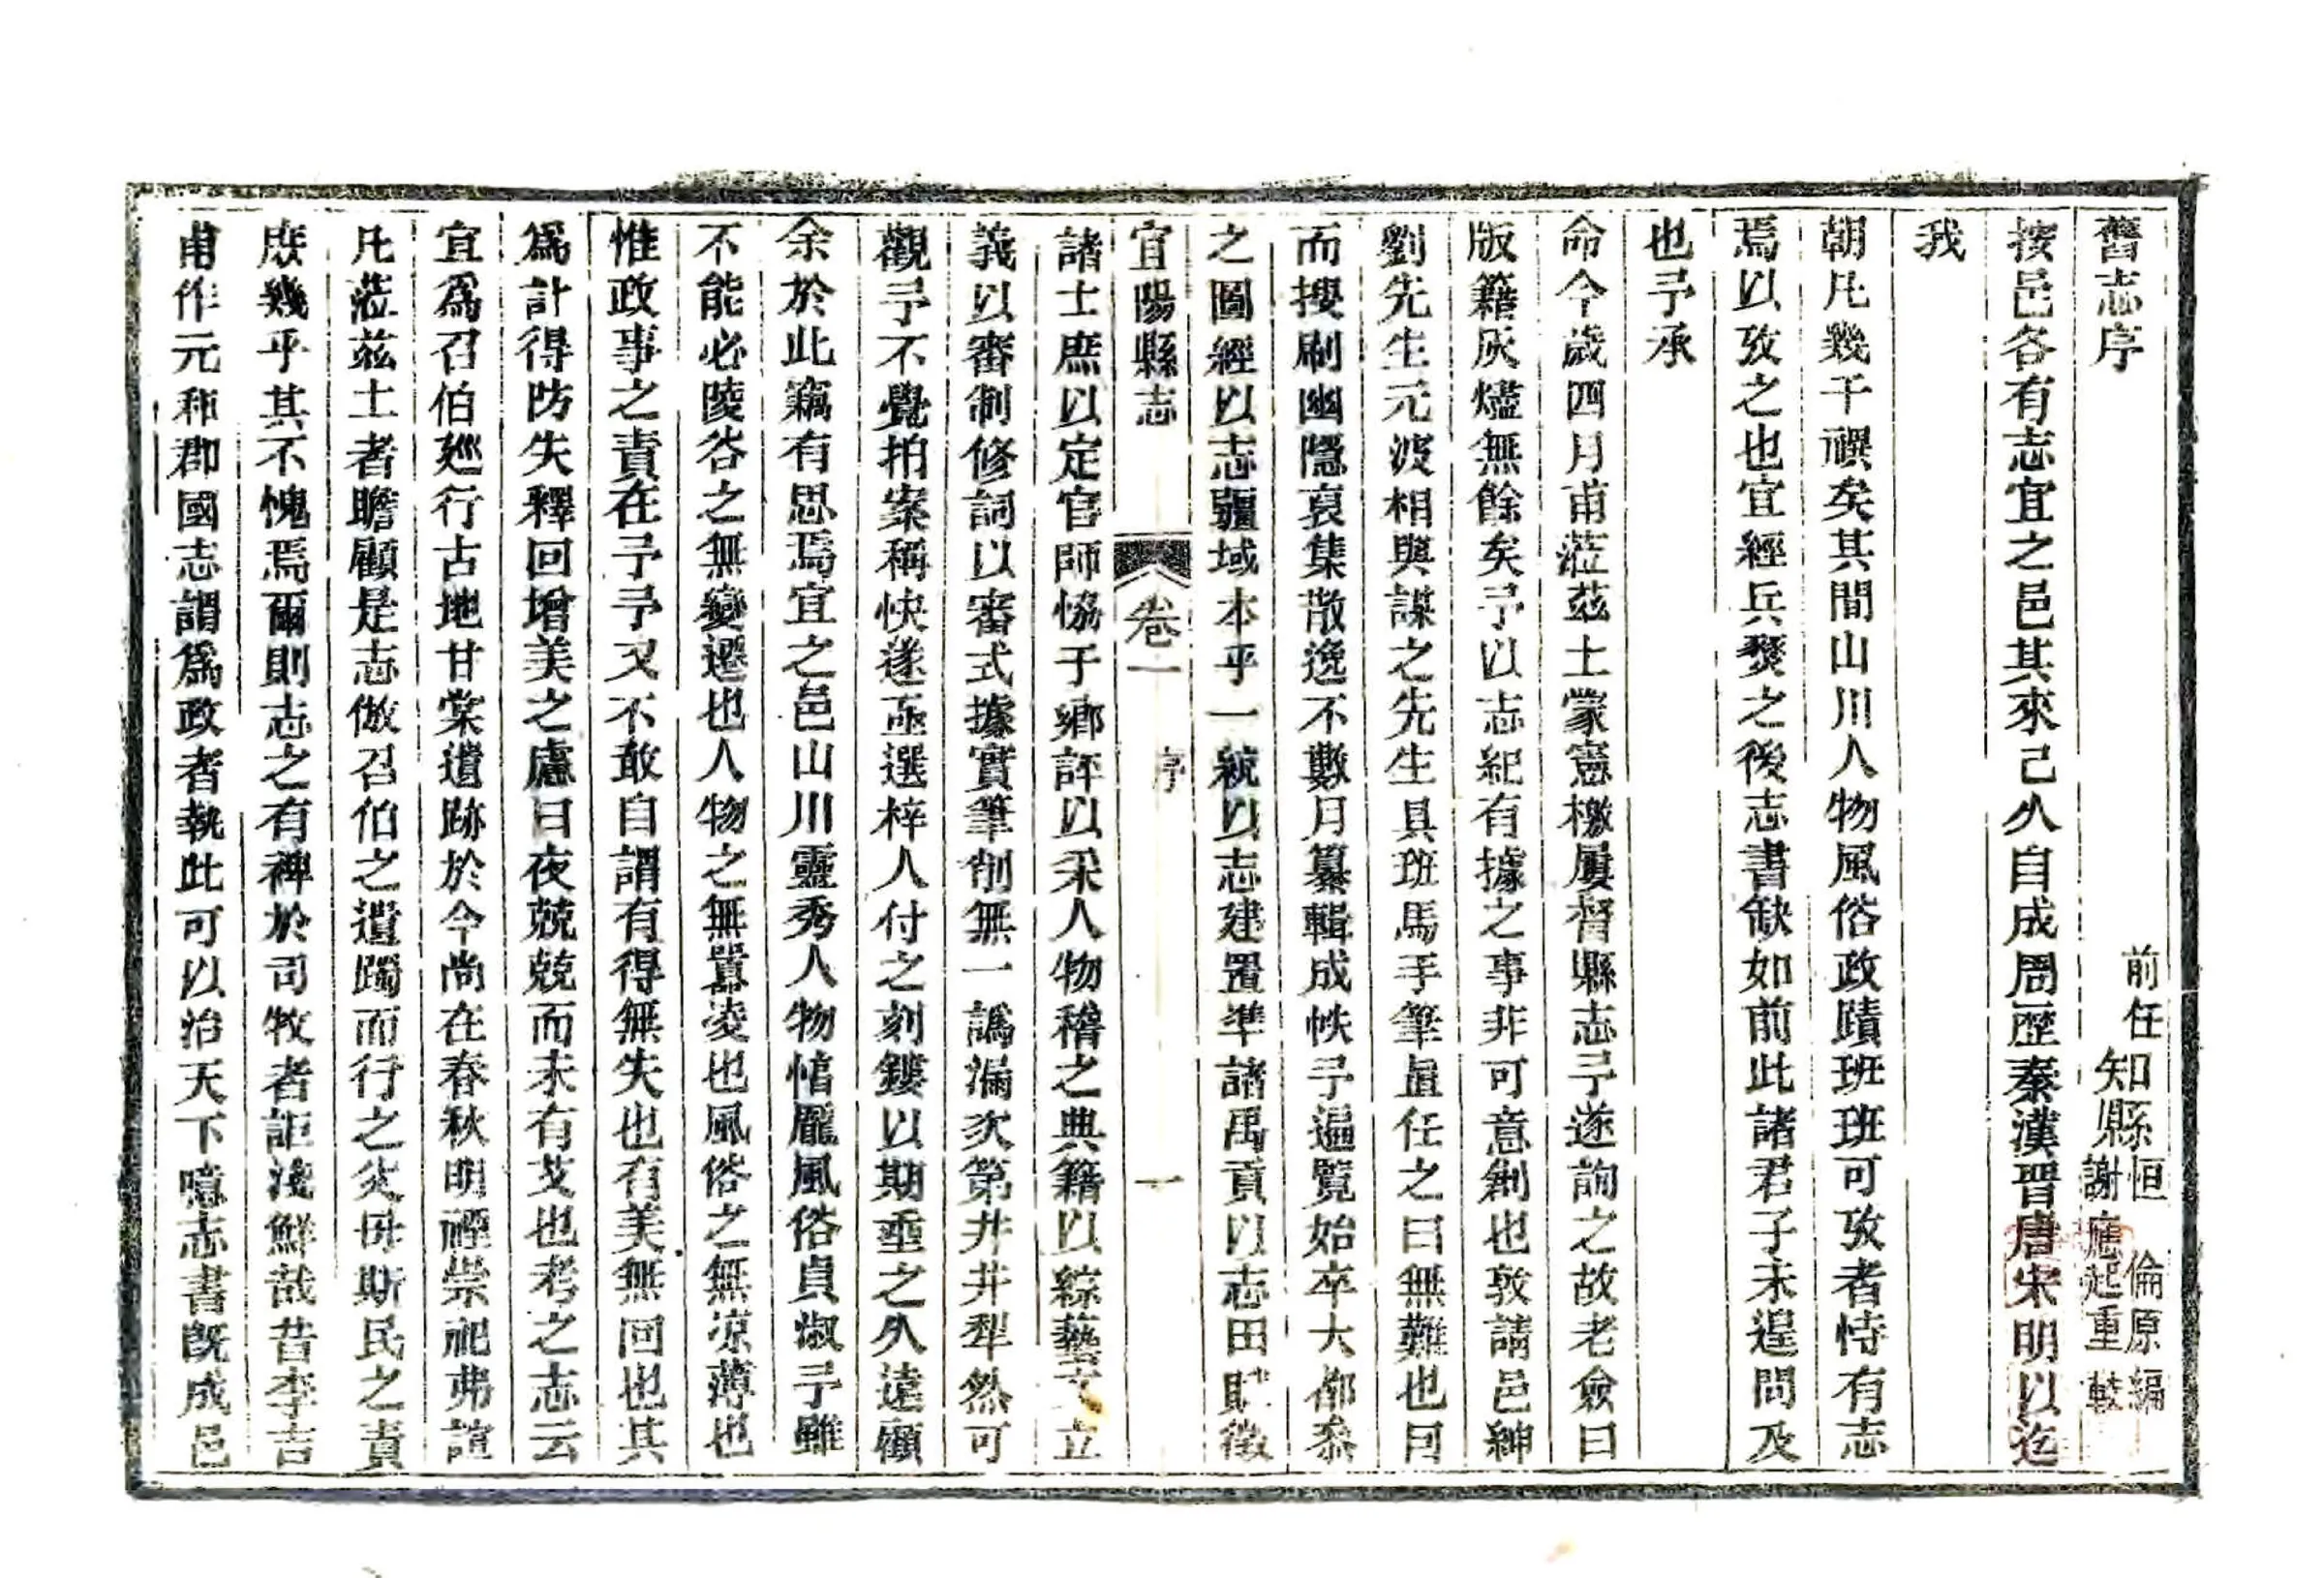 舊志序
前任知縣恒倫原編
謝應起重輯
按邑各有志宜之邑其來已久自成周歷秦漢晉唐宋明以迄
我
朝凡幾千禩矣其間山川人物風俗政蹟班班可攷者恃有志
焉以攷之也宜經兵燹之後志書缺如前此諸君子未遑問及
也予承
命今歲四月甫蒞茲土蒙憲檄屢督縣志予遂詢之故老僉曰
版籍灰燼無餘矣予以志紀有據之事非可意創也敦請邑紳
劉先生元波相與謀之先生具班馬手筆直任之曰無難也因
而搜刷幽隱裒集散逸不數月纂輯成帙予遍覽始卒大都叅
之圖經以志疆域本乎一統以志建置準諸禹貢以志田賦徵
諸士庶以定官師恊于鄉評以采人物稽之典籍以綜藝文立
義以審制修詞以審式據實筆削無一譌漏次第井井犁然可
觀予不覺拍案稱快遂亟選梓人付之刻鏤以期垂之久遠顧
余於此竊有思焉宜之邑山川靈秀人物惇龎風俗貞淑予雖
不能必陵谷之無變遷也人物之無囂凌也風俗之無凉薄也
惟政事之責在予予又不敢自謂有得無失也有美無回也其
爲計得防失釋回增美之慮日夜兢兢而未有艾也考之志云
宜爲召伯廵行古地甘棠遺跡於今尚在春秋明禋崇祀弗諠
凡蒞茲土者瞻顧是志倣召伯之遺躅而行之灾毋斯民之責
庻幾乎其不愧焉爾則志之有裨於司牧者詎淺鮮哉昔李吉
甫作元和郡國志謂爲政者執此可以治天下噫志書既成邑
宜陽縣志
卷一
序
一